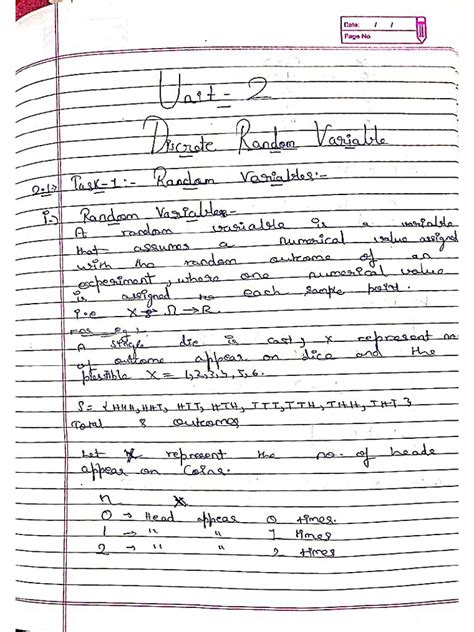 Date: / /
Page No
Unit-2
Discrete Random Variable
2.1:> Task-1:- Random Variables:-
i:-) Random Variables-
A random variable is a variable
that assumes a numerical value assigned
with the random outcome of an
experiment, where one numerical value
is assigned to each sample point.
i.e X Ω → R.
For eg:
A single die is cast, x represent
of outcome appear on dice and the
possible X = 1,2,3,4,5,6.
S= {HHH, HHT, HTT, HTH, TTT, TTH, THH, THT}
Total 8 outcomes
Let X represent the no. of heads
appear on Coins.
n X
0 → Head appear 0 times.
1 → " " 1 times
2 → " " 2 times